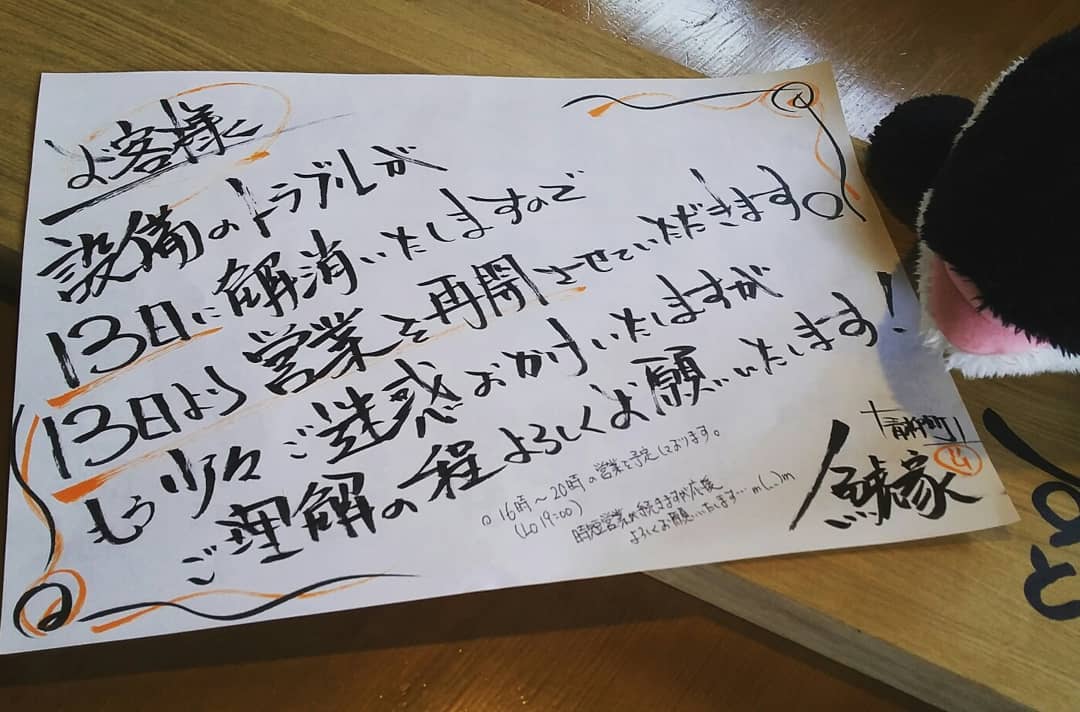 お客様
設備のトラブルが
13日に解消いたしますので
13日より営業を再開させていただきます。
もう少々ご迷惑おかけいたしますが
ご理解の程よろしくお願いいたします!
○16時~20時の営業を予定しております。
(LO 19:00)
時短営業が続きますが応援
よろしくお願いいたします… m(_ _)m
青柳町
家